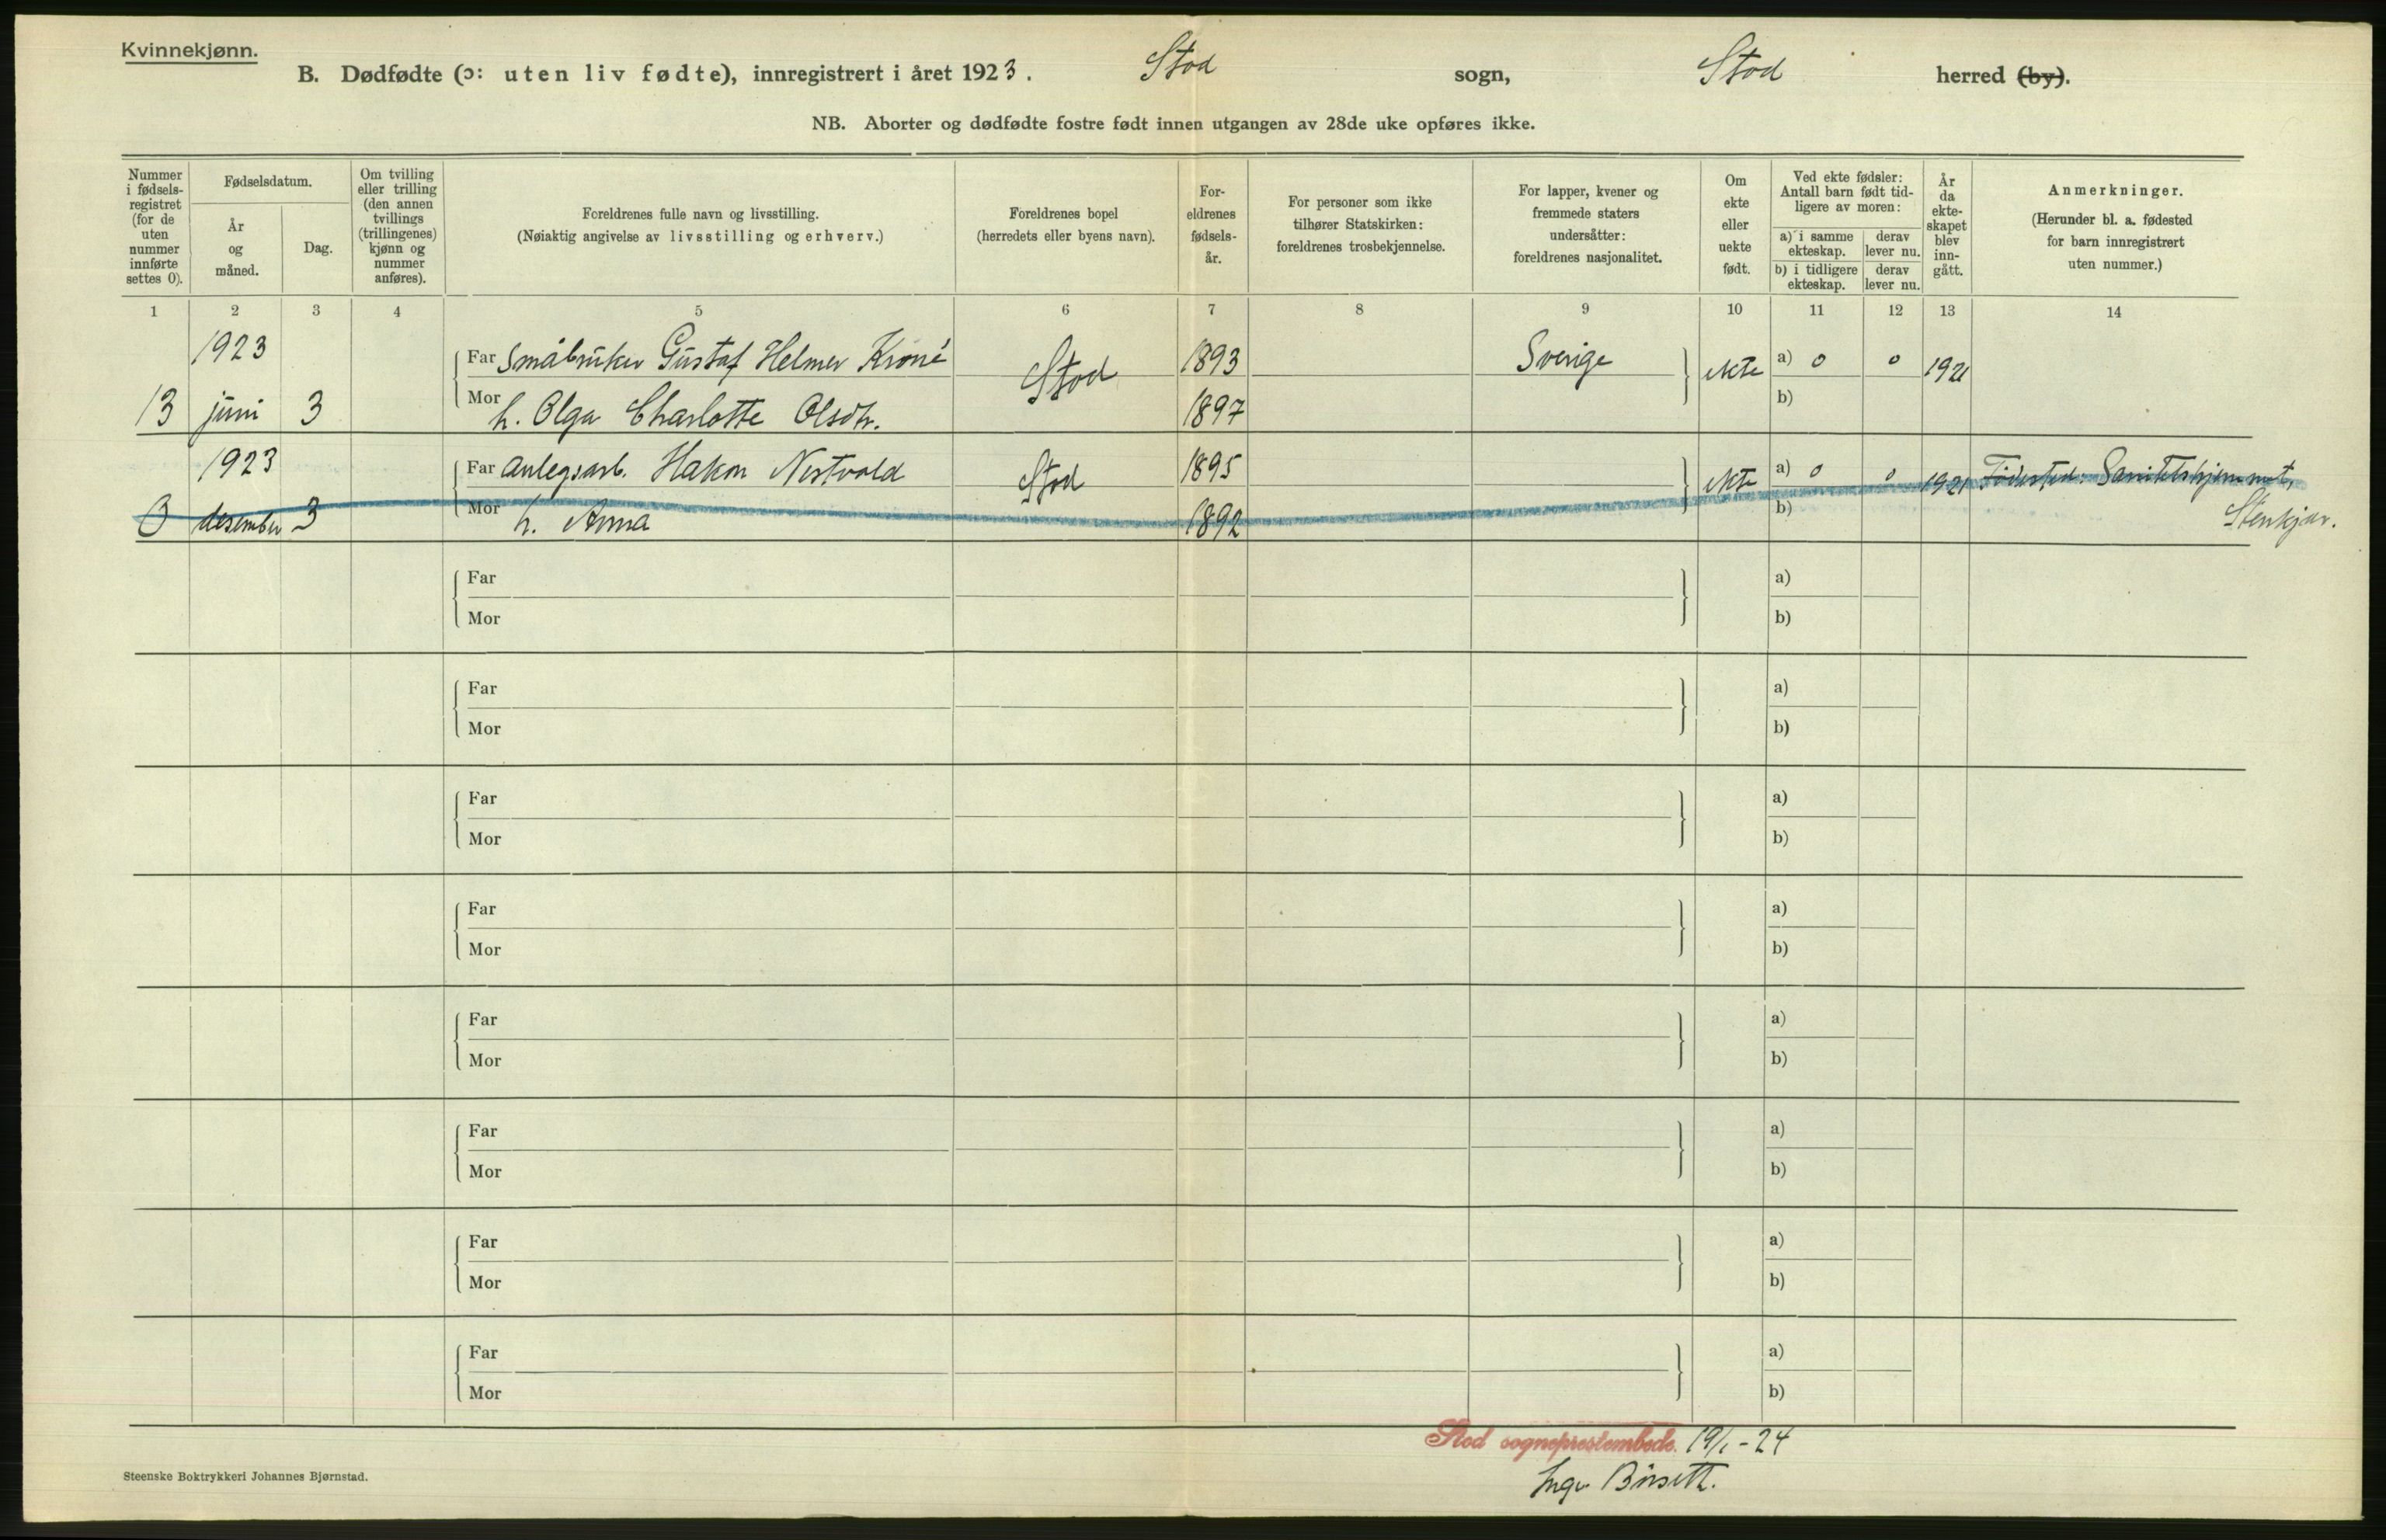 Kvinnekjønn.
B. Dødfødte (ɔ: uten liv fødte), innregistrert i året 1923. Stod sogn, Stod herred (by).
NB. Aborter og dødfødte fostre født innen utgangen av 28de uke opføres ikke.
Nummer
i fødsels-
registret
(for de
uten
nummer
innførte
settes 0).
Fødselsdatum.
År
og
måned.
Dag.
Om tvilling
eller trilling
(den annen
tvillings
(trillingenes)
kjønn og
nummer
anføres).
Foreldrenes fulle navn og livsstilling.
(Nøiaktig angivelse av livsstilling og erhverv.)
Foreldrenes bopel
(herredets eller byens navn).
For-
eldrenes
fødsels-
år.
For personer som ikke
tilhører Statskirken:
foreldrenes trosbekjennelse.
For lapper, kvener og
fremmede staters
undersåtter:
foreldrenes nasjonalitet.
Om
ekte
eller
uekte
født.
Ved ekte fødsler:
Antall barn født tid-
ligere av moren:
a) i samme
ekteskap.
derav
lever nu.
b) i tidligere
ekteskap.
derav
lever nu.
År
da
ekte-
skapet
blev
inn-
gått.
Anmerkninger.
(Herunder bl. a. fødested
for barn innregistrert
uten nummer.)
1 2 3 4 5 6 7 8 9 10 11 12 13 14
1923 Far Småbruker Gustaf Helmer Kroné Stod 1893 Sverige ekte a) 0 0 1921
13 juni 3 Mor h. Olga Charlotte Olsdtr. 1897 b)
1923 Far Anlegsarb. Håkon Nestvold Stod 1895 ekte a) 0 0 1921 Fødested: Sanitetshjemmet,
0 desember 3 Mor h. Anna 1892 b) Stenkjær.
Far a)
Mor b)
Far a)
Mor b)
Far a)
Mor b)
Far a)
Mor b)
Far a)
Mor b)
Far a)
Mor b)
Far a)
Mor b)
Far a)
Mor b)
Stod sogneprestembede. 19/1-24
Steenske Boktrykkeri Johannes Bjørnstad.